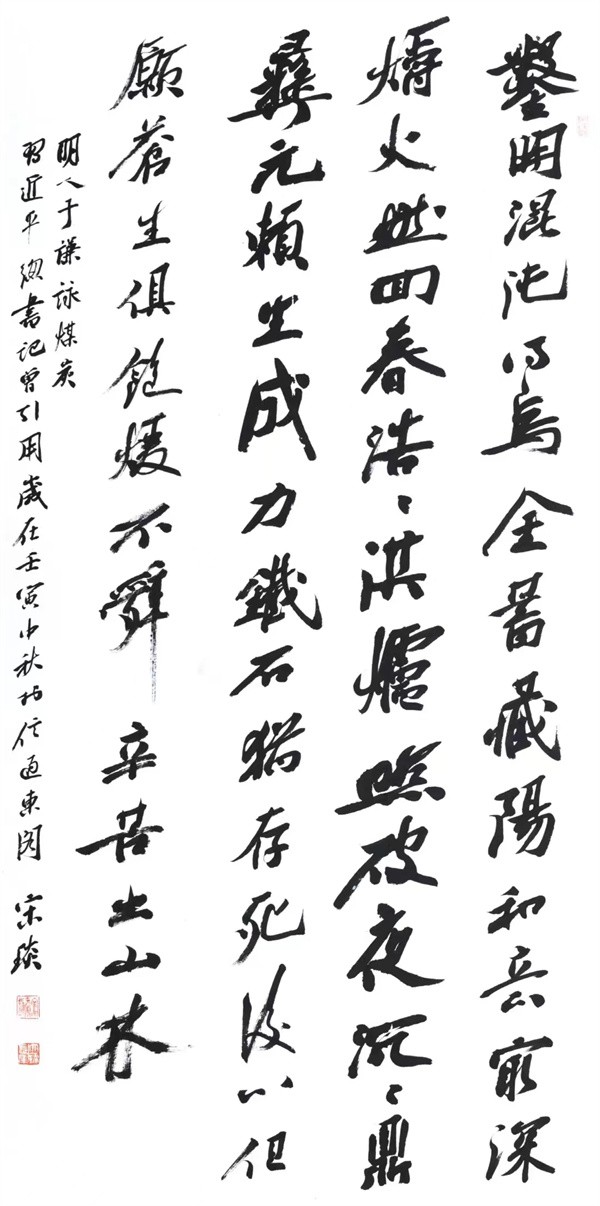 鑿開混沌得烏金蓄藏陽和意最深
爝火燃回春浩〻洪爐照破夜沉〻鼎
彝元賴生成力鐵石猶存死後心但
願蒼生俱飽煖不辭辛苦出山林
明人于謙詠煤炭
習近平總書記曾引用歲在壬寅中秋於信通東閣 宋琰